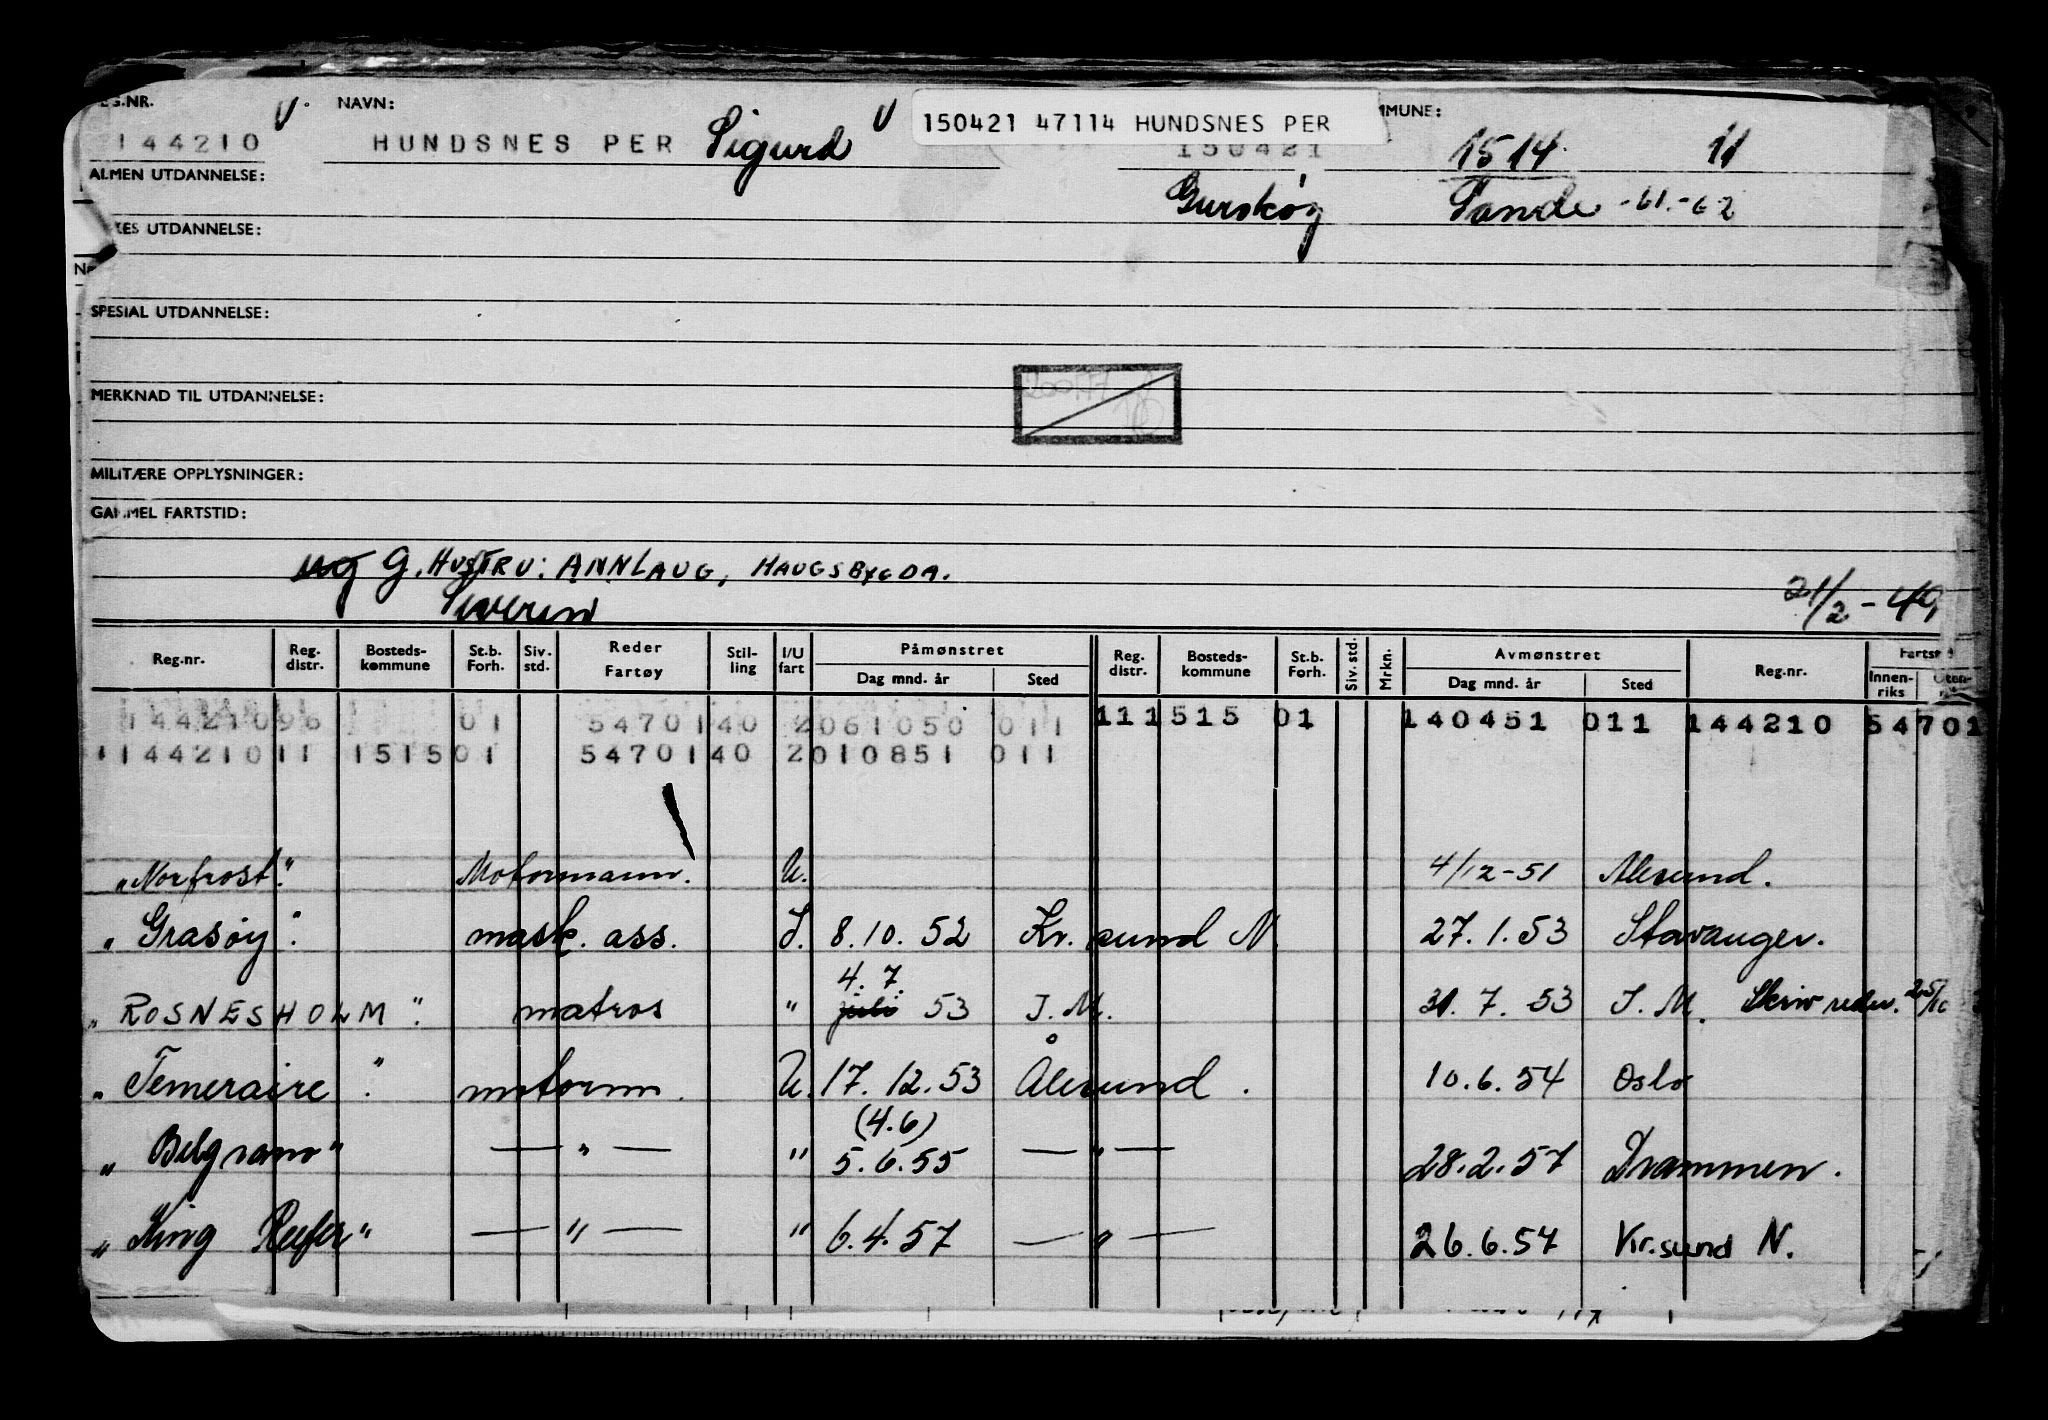 EG.NR. V. NAVN: V 150421 47114 HUNDSNES PER MMUNE:
144210 HUNDSNES PER Sigurd 150421 1514. 11
ALMEN UTDANNELSE: Gurskøy Sande -61.-62
KES UTDANNELSE:
SPESIAL UTDANNELSE:
MERKNAD TIL UTDANNELSE:
MILITÆRE OPPLYSNINGER:
GAMMEL FARTSTID:
ug G. HUSTRU: ANNLAUG, HAUGSBYGDA.
Severin 21/2 - 49
Reg.nr. Reg. distr. Bosteds- kommune St.b. Forh. Siv. std. Reder Fartøy Stil- ling I/U fart Påmønstret Dag mnd. år Sted Reg. distr. Bosteds- kommune St.b. Forh. Siv. std. Mrkn. Avmønstret Dag mnd. år Sted Reg.nr. Innen- riks
14421096 01 5470140 2061050 011 111515 01 140451 011 144210 54701
114421011 151501 5470140 2010851 011
"Norfrost". Motormann. U. 4/12-51 Ålesund.
"Grasøy". mask. ass. I. 8.10.52 Kr.sund N. 27.1.53 Stavanger.
4.7.
"ROSNESHOLM". matros " juli 53 I.M. 31.7.53 I.M. Skriv reder. 25/10
"Temeraire". motorm. U. 17.12.53 Ålesund. 10.6.54 Oslo
(4.6)
"Belgrano" — " — " 5.6.55 — " — 28.2.57 Drammen.
"King Reefer" — " — " 6.4.57 — " — 26.6.57 Kr.sund N.